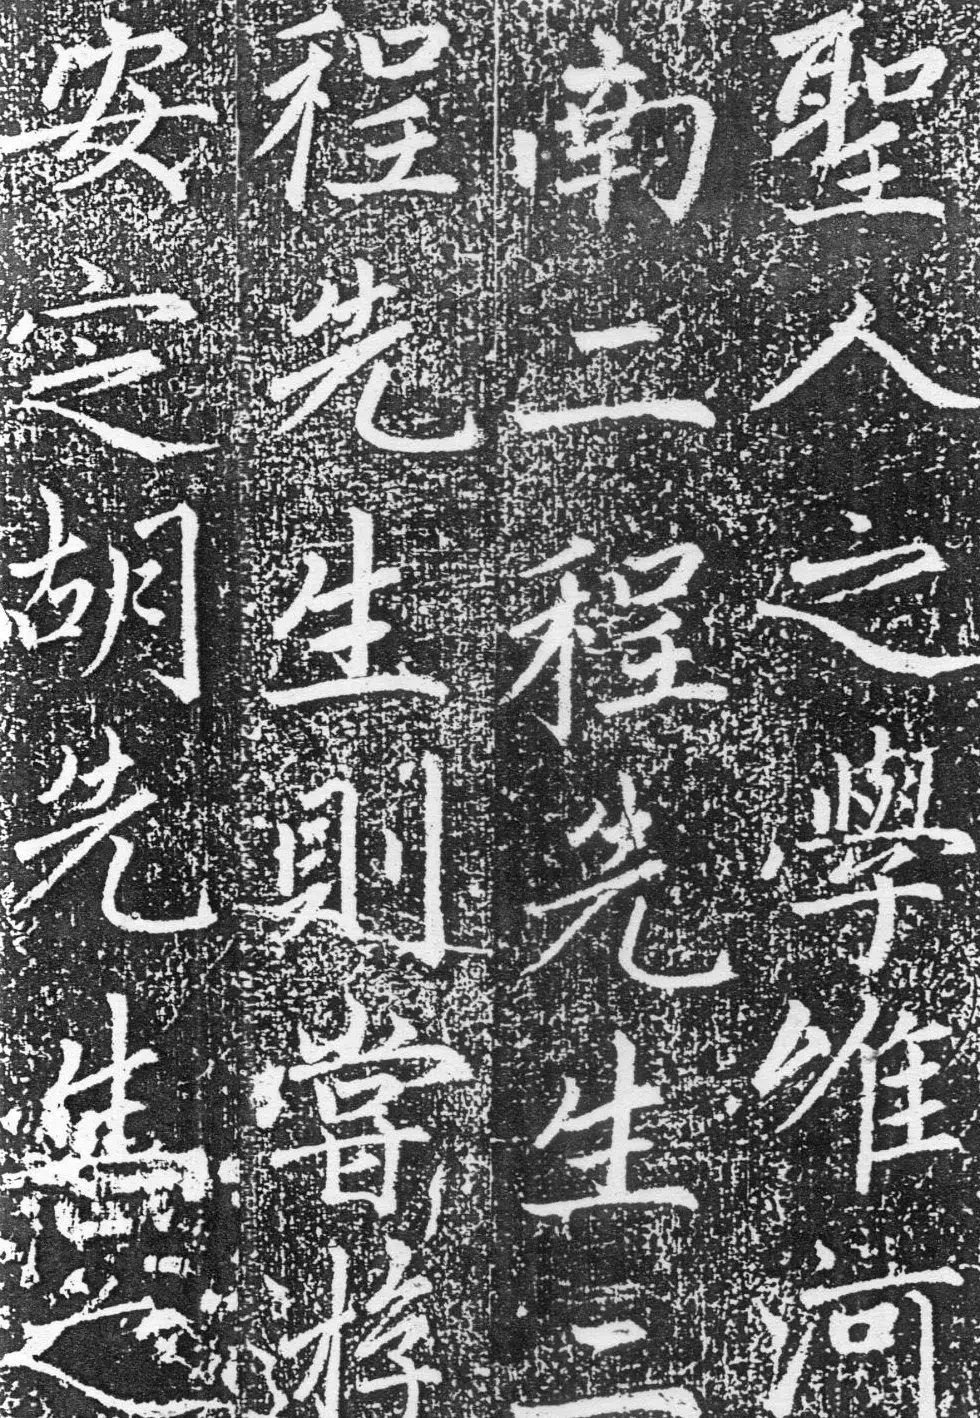 聖人之學唯河
南二程先生二
程先生則甞游
安定胡先生之